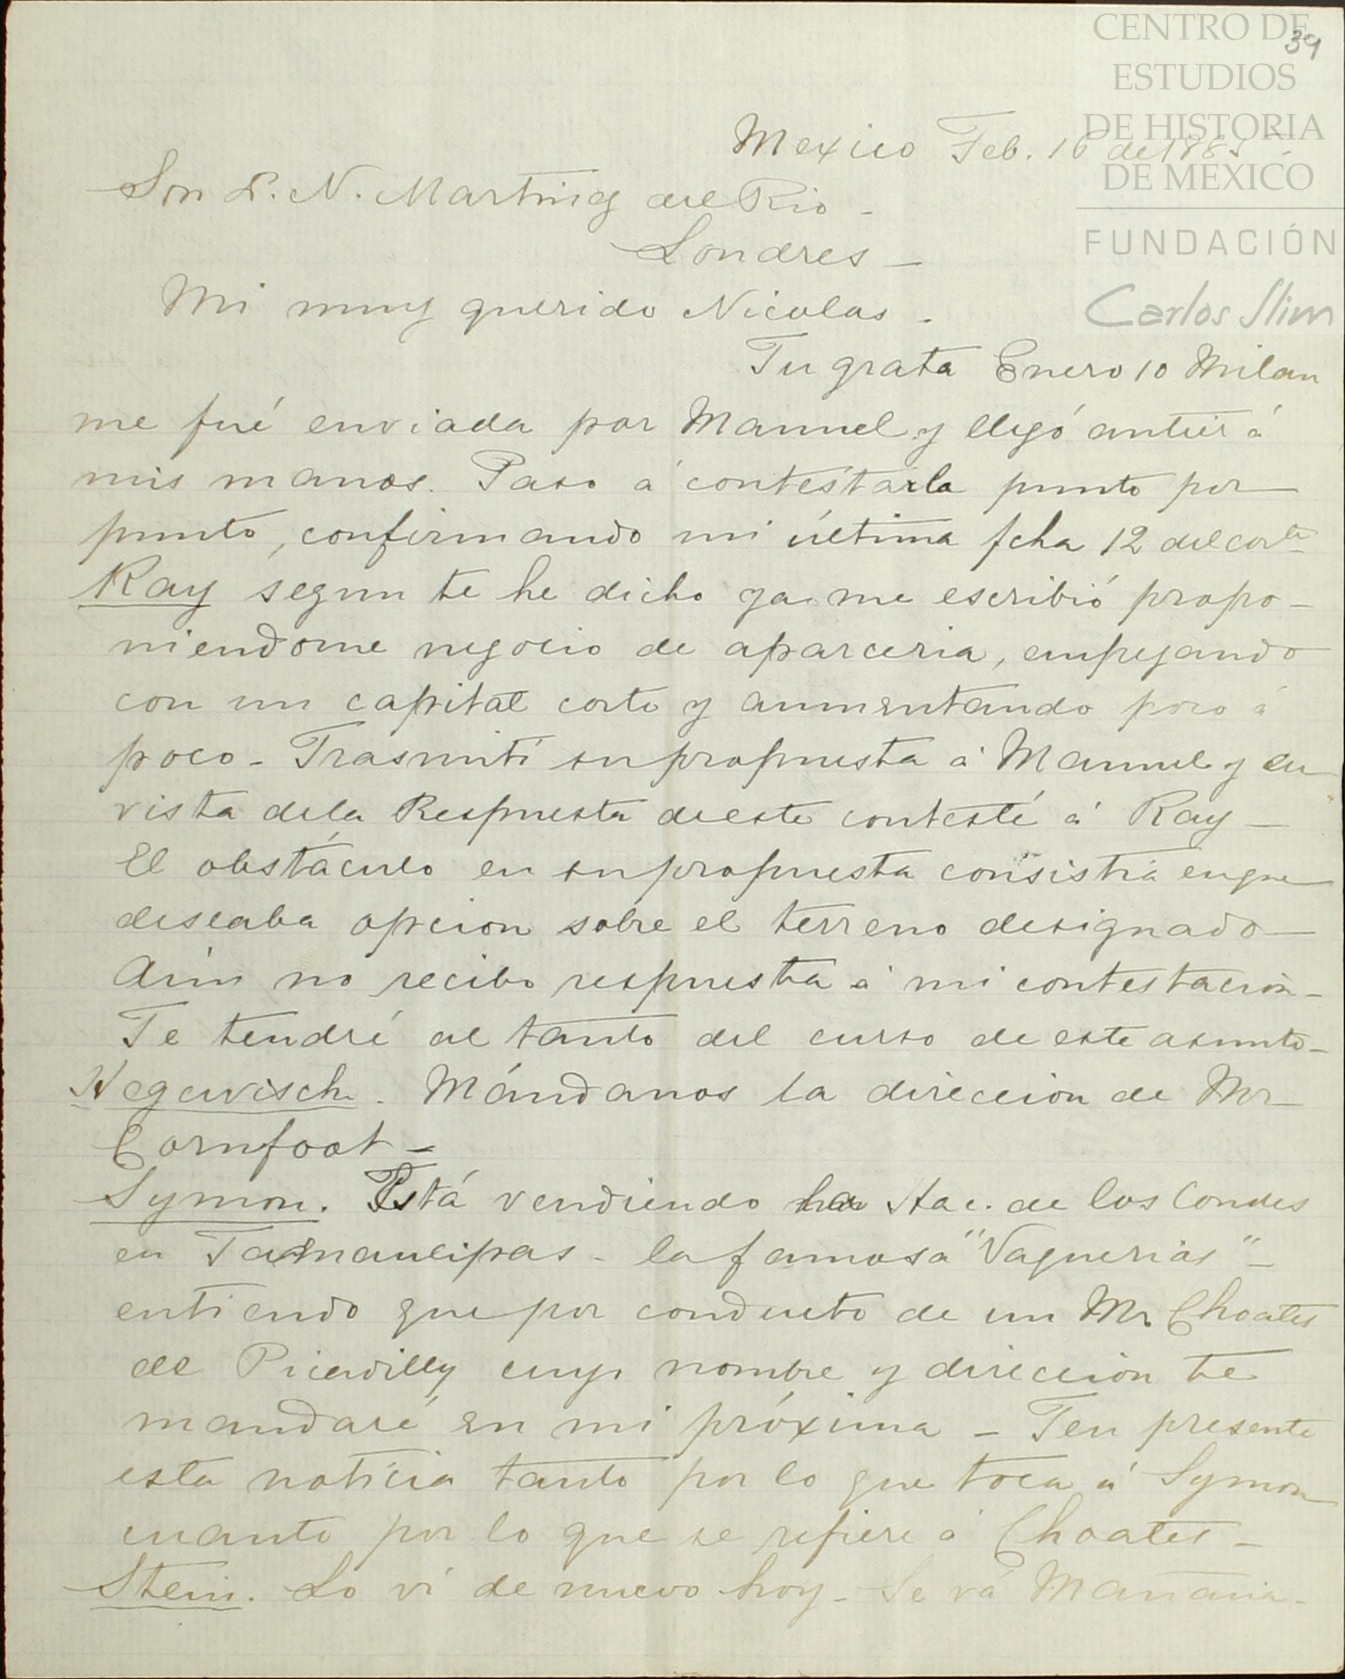 39
CENTRO DE
ESTUDIOS
DE HISTORIA
DE MÉXICO
FUNDACIÓN
Carlos Slim
Mexico Feb. 16 de 1885
Sor D. N. Martinez del Rio -
Londres -
Mi muy querido Nicolas -
Tu grata Enero 10 Milan
me fué enviada por Manuel y llegó antier á
mis manos. Paso á contestarla punto por
punto, confirmando mi última fcha 12 del corte
Ray segun te he dicho ya me escribió propo-
niendome negocio de aparceria, empezando
con un capital corto y aumentando poco á
poco - Trasmití su propuesta á Manuel y en
vista dela Respuesta de este contesté á Ray -
El obstáculo en su propuesta consistia en que
deseaba opcion sobre el terreno designado -
Aún no recibo respuesta á mi contestacion -
Te tendré al tanto del curso de este asunto -
Hegewisch. Mándanos la direccion de Mr
Cornfoot -
Symon. Está vendiendo la Hac. de los Condes
en Tamaulipas - la famosa "Vaquerias" -
entiendo que por conducto de un Mr Choates
de Picadilly cuyo nombre y direccion te
mandaré en mi próxima - Ten presente
esta noticia tanto por lo que toca á Symon
cuanto por lo que se refiere á Choates -
Stein. Lo ví de nuevo hoy - Se vá Mañana -